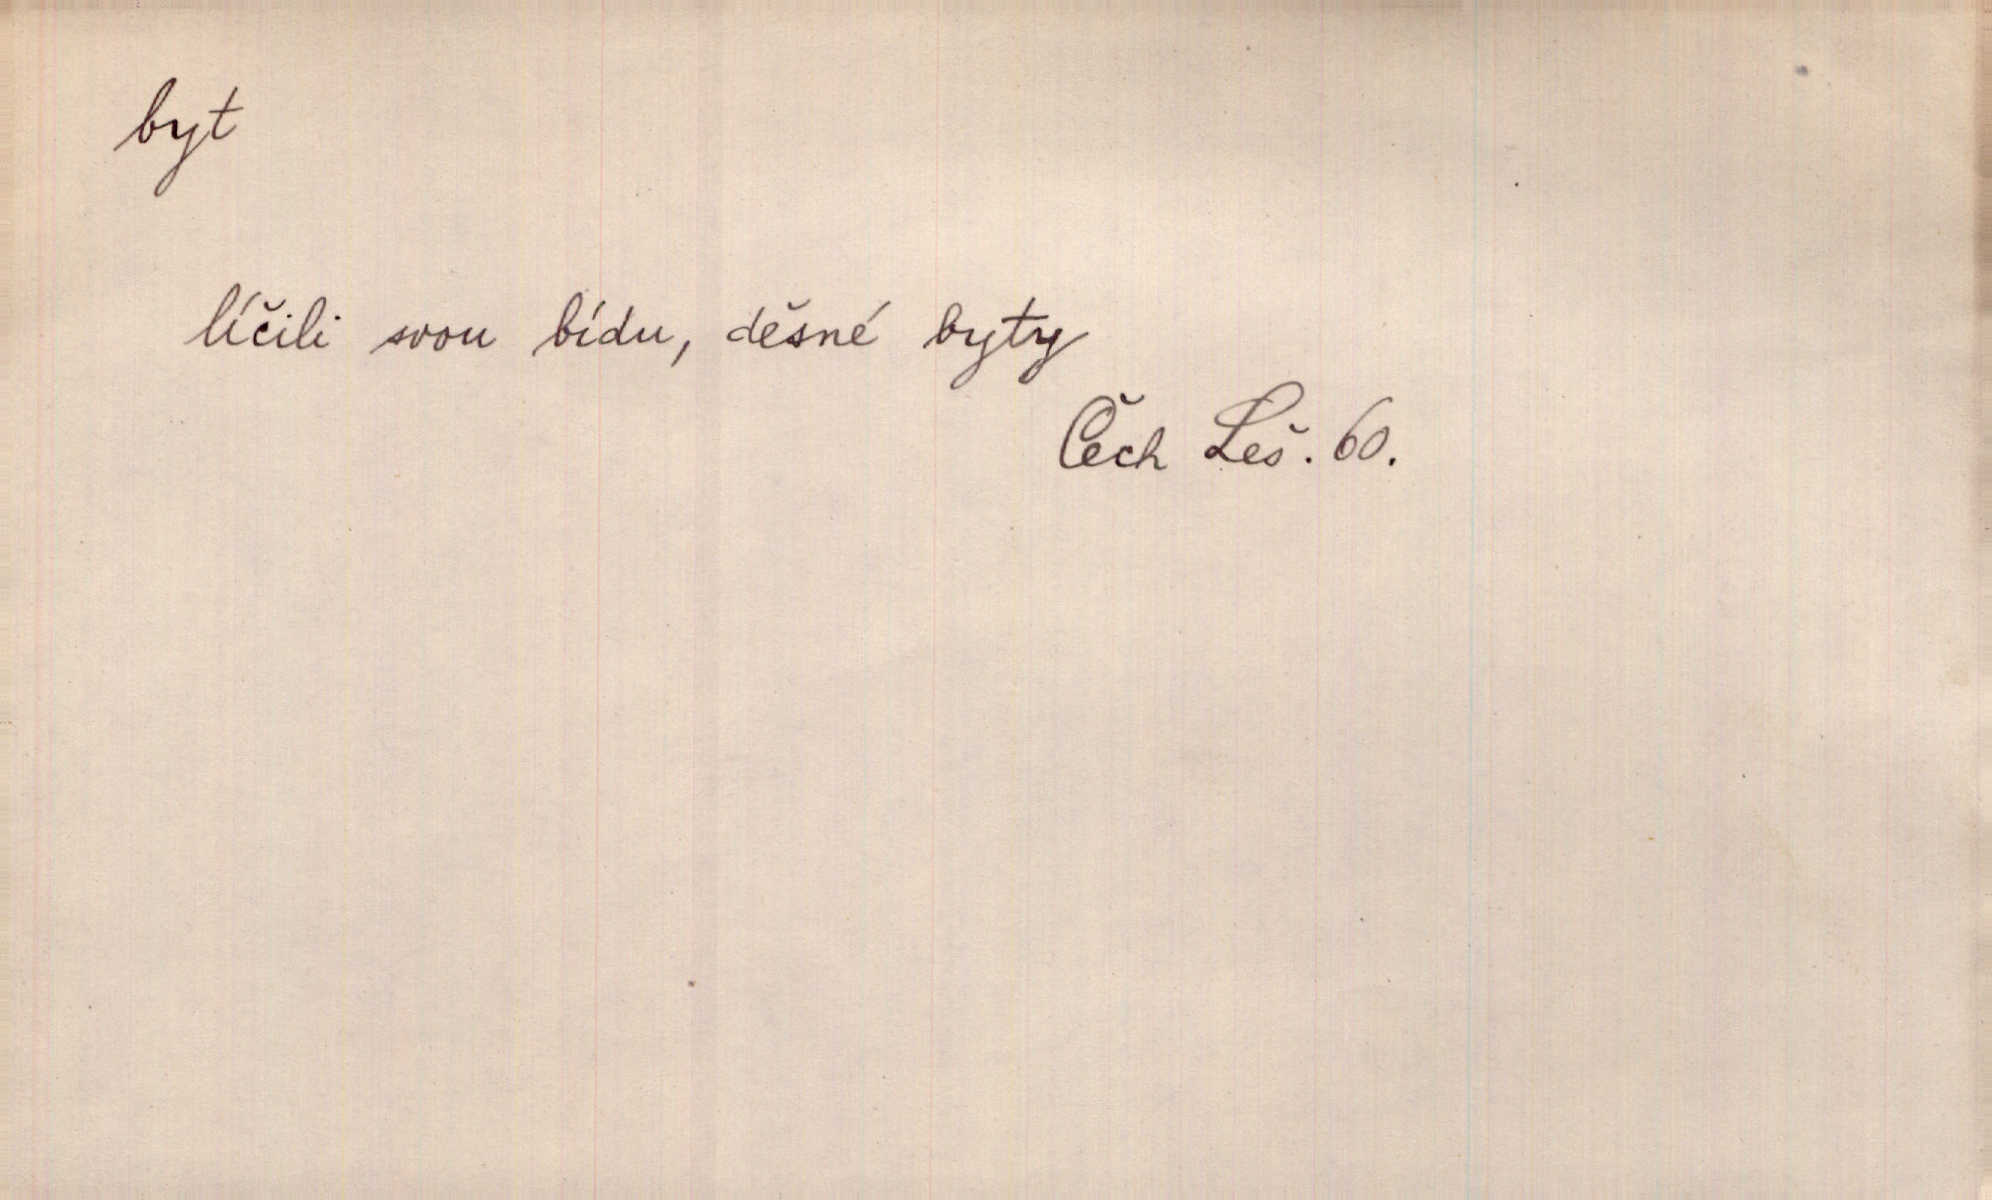 byt
líčili svou bídu, děsné byty
Čech Leš. 60.